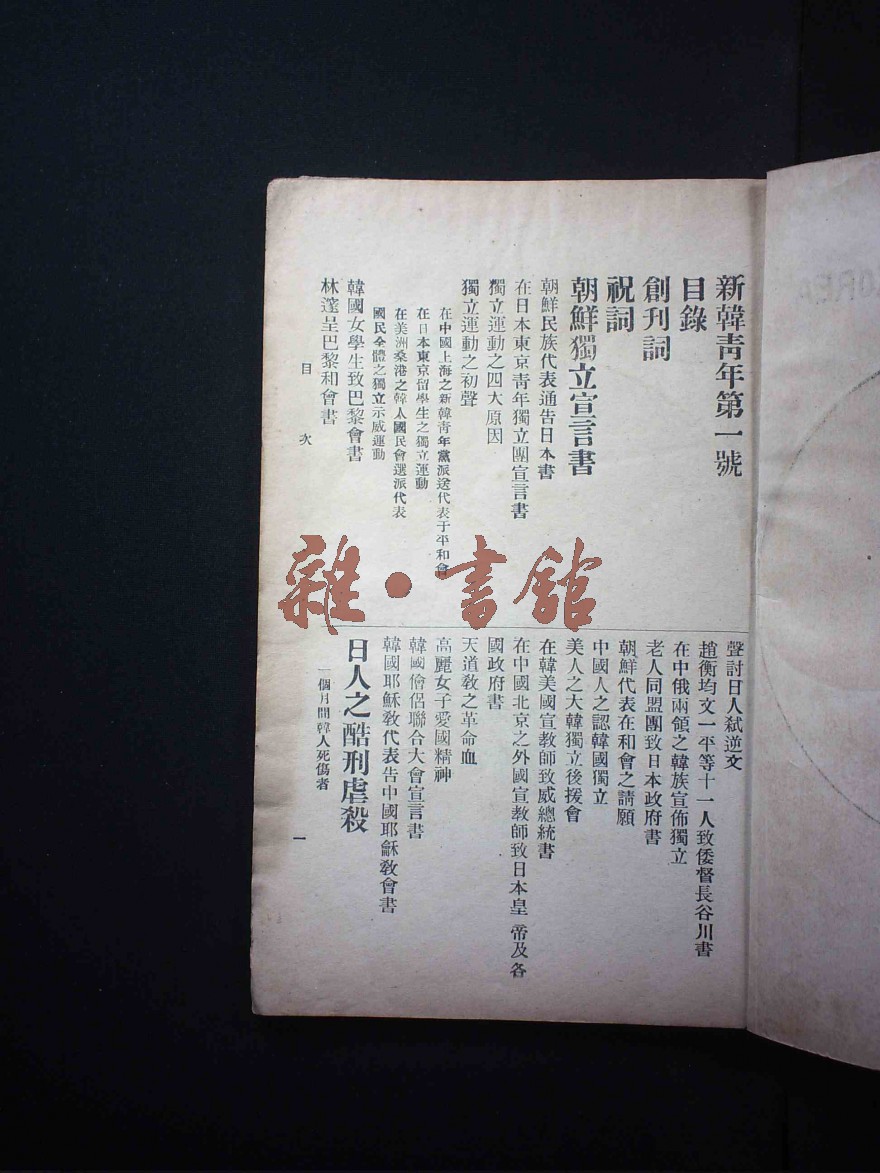 新韓靑年第一號
目錄
創刊詞
祝詞
朝鮮獨立宣言書
朝鮮民族代表通告日本書
在日本東京靑年獨立團宣言書
獨立運動之四大原因
獨立運動之初聲
在中國上海之新韓靑年黨派送代表于平和會
在日本東京留學生之獨立運動
在美洲桑港之韓人國民會選派代表
國民全體之獨立示威運動
韓國女學生致巴黎會書
林籩呈巴黎和會書
聲討日人弑逆文
趙衡均文一平等十一人致倭督長谷川書
在中俄兩領之韓族宣佈獨立
老人同盟團致日本政府書
朝鮮代表在和會之請願
中國人之認韓國獨立
美人之大韓獨立後援會
在韓美國宣教師致威總統書
在中國北京之外國宣教師致日本皇帝及各
國政府書
天道敎之革命血
高麗女子愛國精神
韓國僧侶聯合大會宣言書
韓國耶穌敎代表告中國耶穌敎會書
日人之酷刑虐殺
一個月間韓人死傷者
目次
一
雜·書館
KOREA